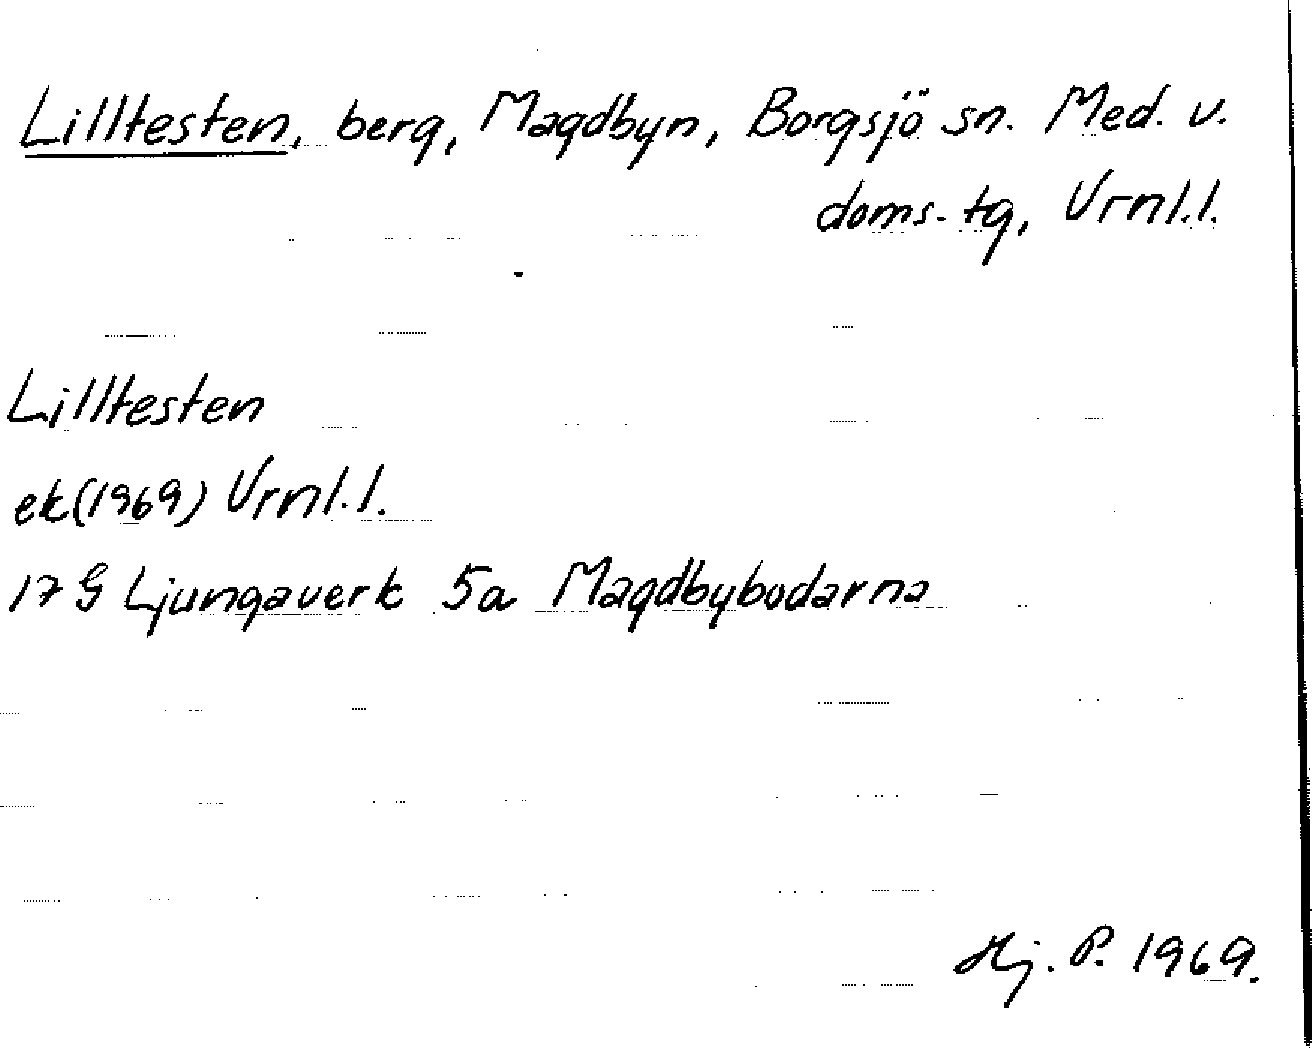 Lilltesten, berg, Magdbyn, Borgsjö sn. Med. v.
doms. tg, Vrnl.l.
Lilltesten
ek (1969) Vrnl.l.
17 G Ljungaverk 5a Magdbybodarna
Hj. P. 1969.